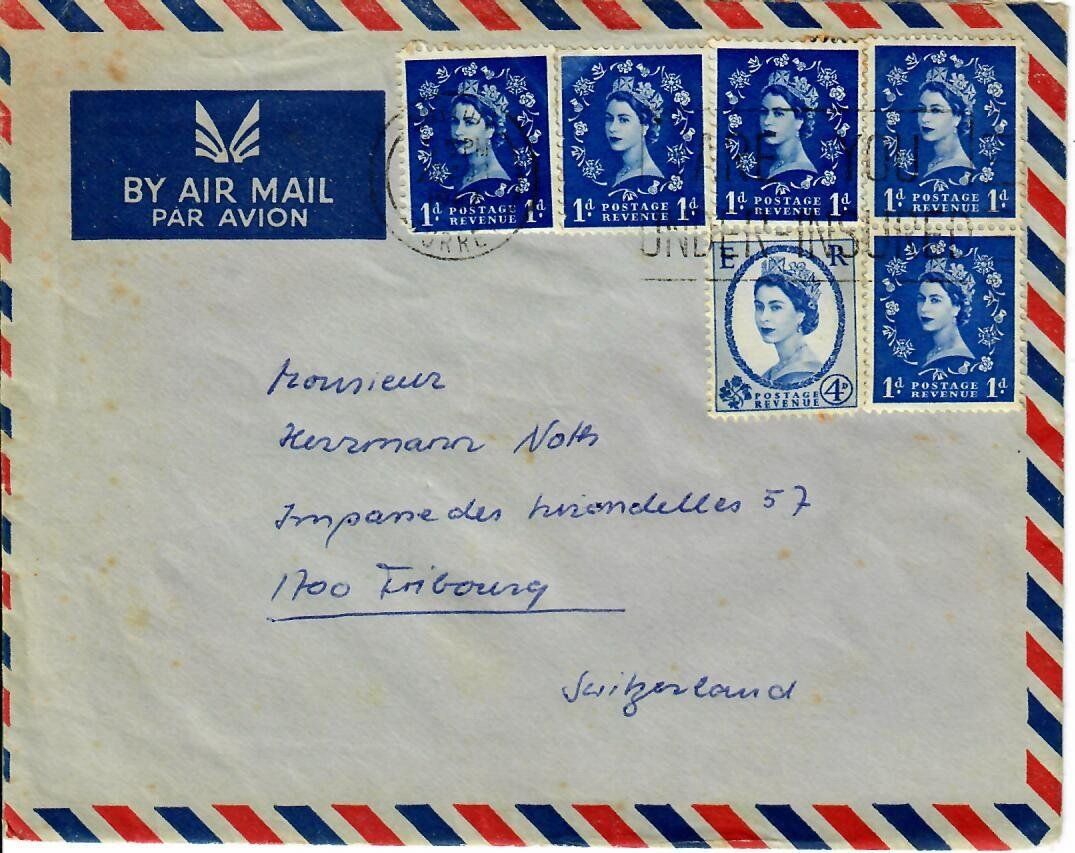 BY AIR MAIL
PAR AVION
1d POSTAGE REVENUE 1d
1d POSTAGE REVENUE 1d
1d POSTAGE REVENUE 1d
1d POSTAGE REVENUE 1d
PM
ARE YOU
UNDER-INSURED
E R
POSTAGE REVENUE 4D
1d POSTAGE REVENUE 1d
Monsieur
Herrmann Noth
Impasse des hirondelles 57
1700 Fribourg
Switzerland